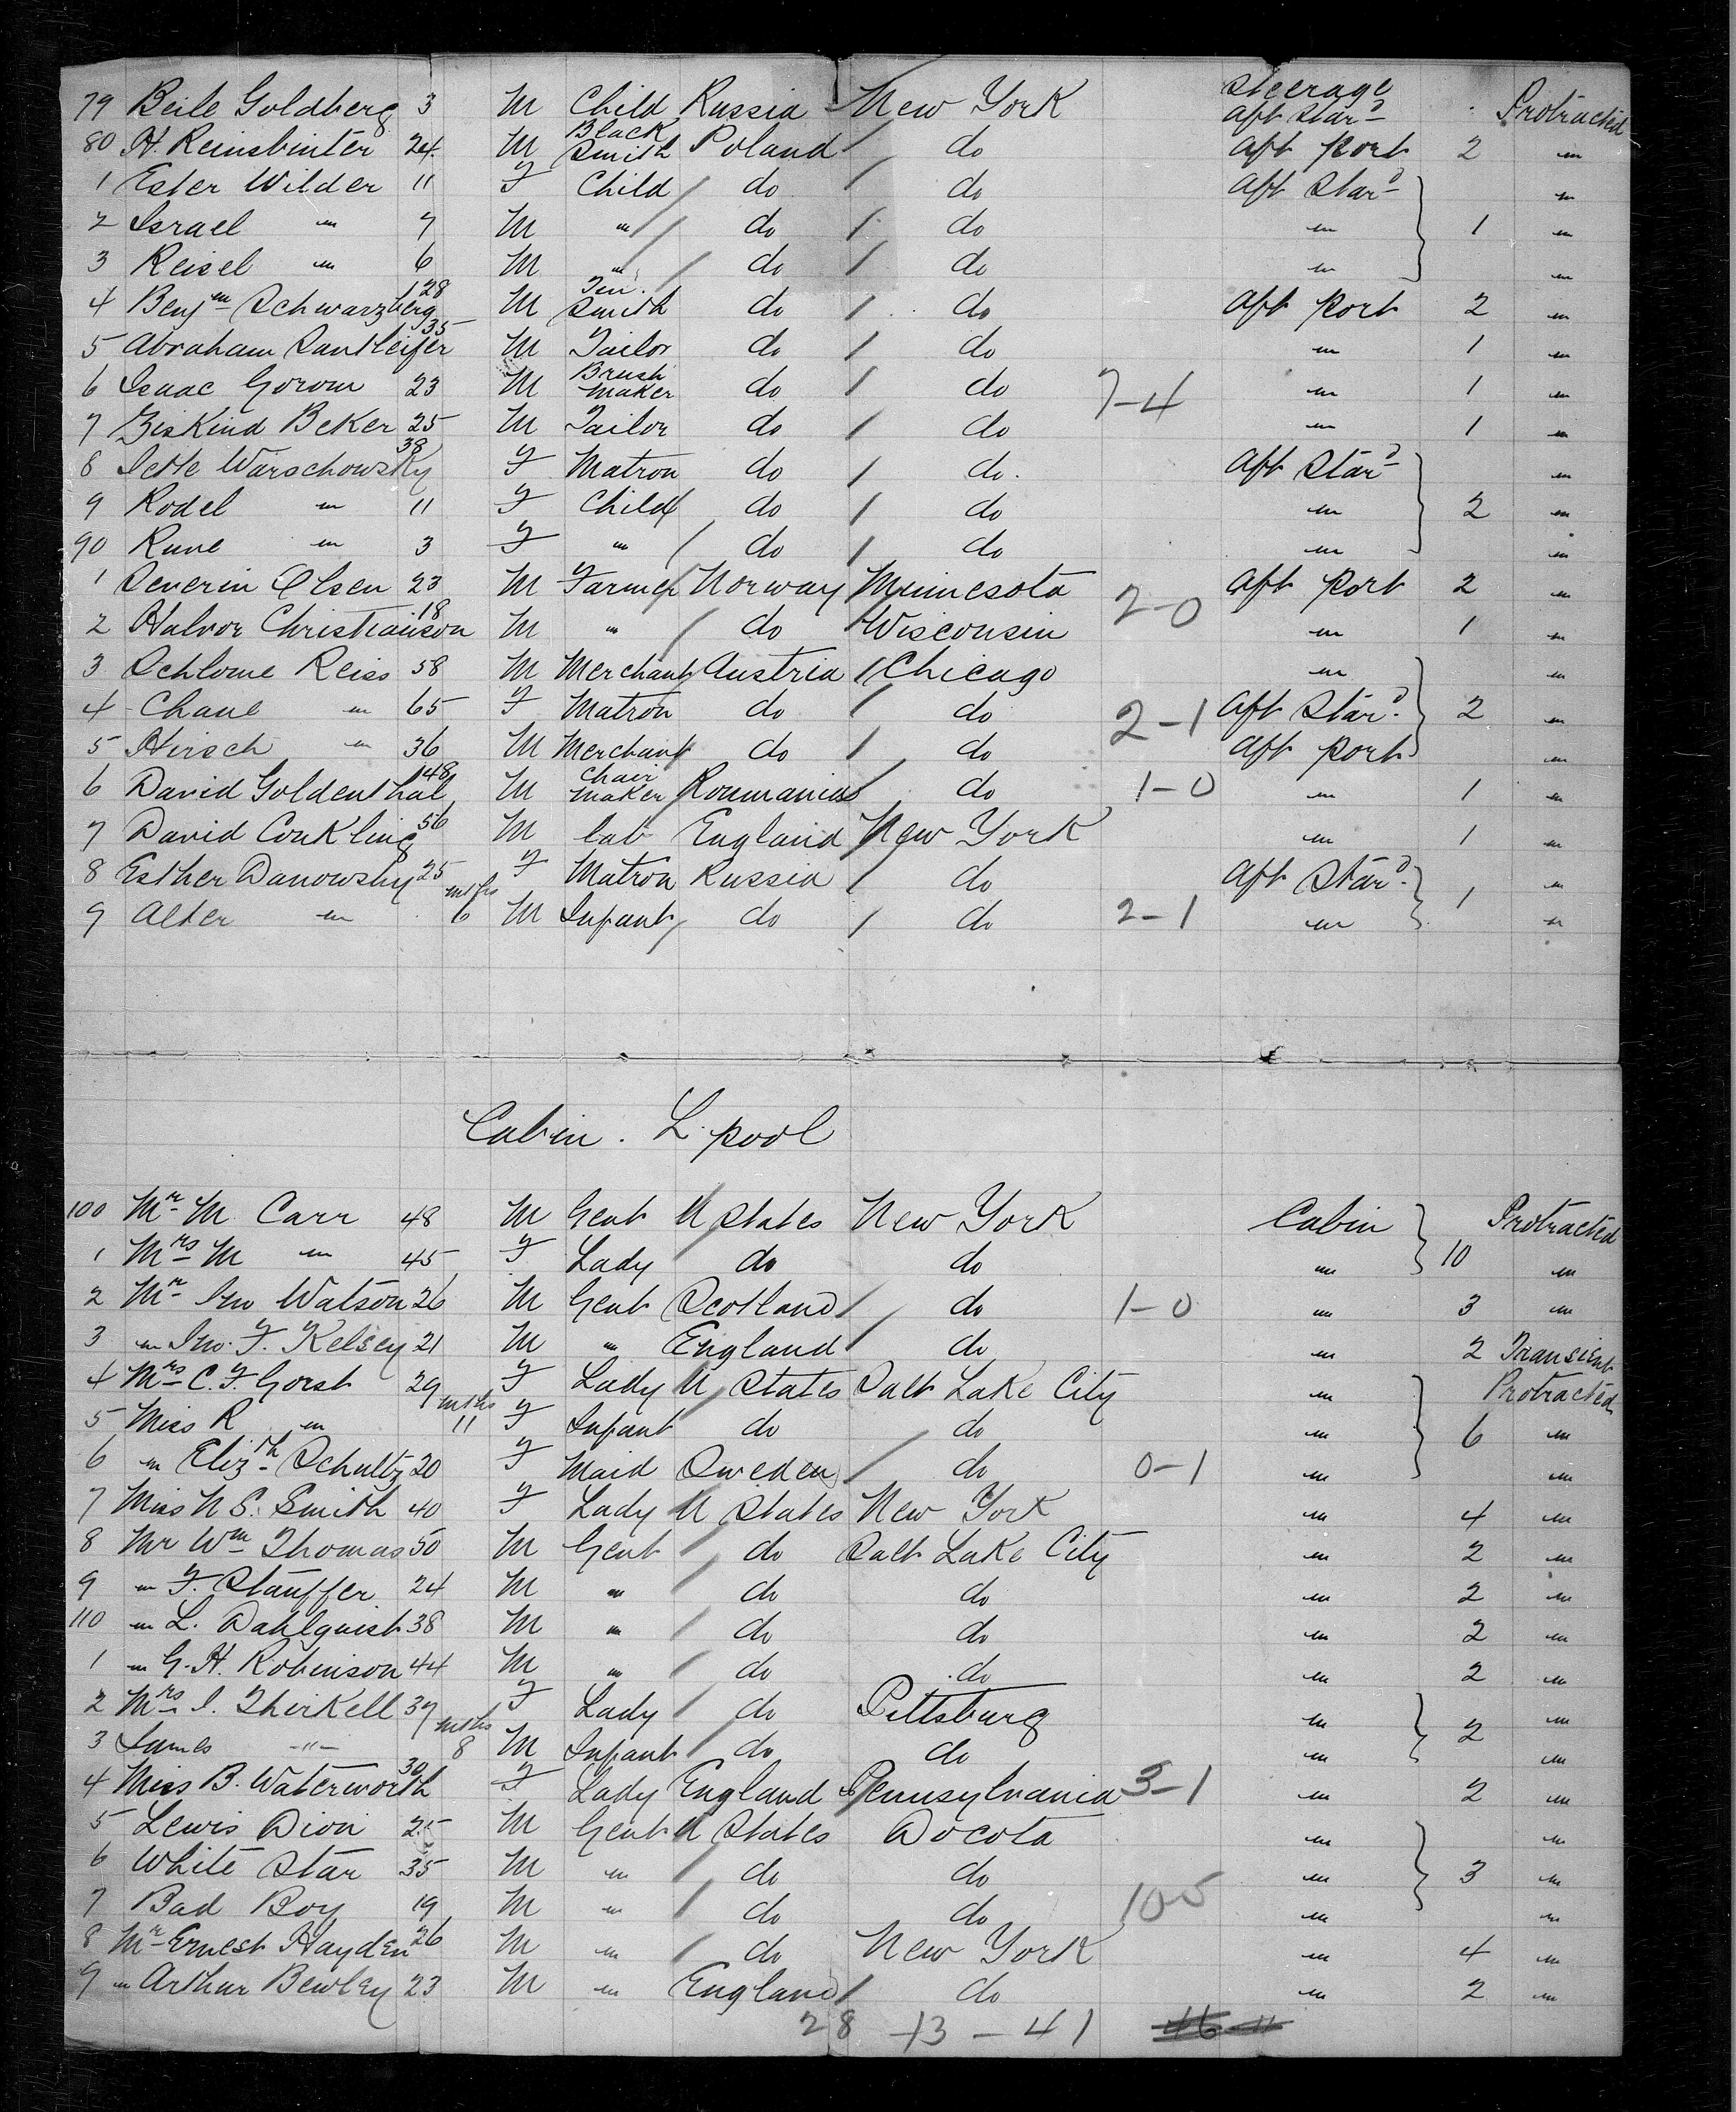 79 Beile Goldberg 3 M Child Russia New York Steerage Aft Star^d Protracted
80 H. Reinsbinter 24 M Black Smith Poland do Aft Port 2 "
1 Ester Wilder 11 F Child do do Aft Star^d "
2 Israel " 7 M " do do " 1 "
3 Reisel " 6 M " do do " "
4 Benj^m Schwarzberg 28 M Tin Smith do do Aft Port 2 "
5 Abraham Santleifer 35 M Tailor do do " 1 "
6 Isaac Gorom 23 M Brush Maker do do 7-4 " 1 "
7 Ziskind Beker 25 M Tailor do do " 1 "
8 Itte Warschowsky 38 F Matron do do. Aft Star^d "
9 Rodel " 11 F Child do do " 2 "
90 Rune " 3 F " do do " "
1 Severin Olsen 23 M Farmer Norway Minnesota 2-0 Aft Port 2 "
2 Halvor Christianson 18 M " do Wisconsin " 1 "
3 Schlome Reiss 58 M Merchant Austria Chicago " "
4 Chane " 65 F Matron do do 2-1 Aft Star^d. 2 "
5 Hirsch " 36 M Merchant do do Aft Port "
6 David Goldenthal 48 M Chair Maker Roumania do 1-0 " 1 "
7 David Conkling 56 M lab England New York " 1 "
8 Esther Danowsky 25 F Matron Russia do Aft Star^d. "
9 Alter " mths 6 M Infant do do 2-1 " 1 "
Cabin. L.pool
100 M^r M Carr 48 M Gent U States New York Cabin Protracted
1 M^rs M " 45 F Lady do do " 10 "
2 M^r Jno Watson 26 M Gent Scotland do 1-0 " 3 "
3 " Jno. F. Kelsey 21 M " England do " 2 Transient
4 M^rs C. F. Gorst 29 F Lady U States Salt Lake City " Protracted
5 Miss R " mths 11 F Infant do do " 6 "
6 " Eliz^th Schultz 20 F Maid Sweden do 0-1 " "
7 Miss N S. Smith 40 F Lady U States New York " 4 "
8 Mr W^m Thomas 50 M Gent do Salt Lake City " 2 "
9 " F. Stauffer 24 M " do do " 2 "
110 " L. Dahlquist 38 M " do do " 2 "
1 " G. H. Robinson 44 M " do do " 2 "
2 M^rs I. Thirkell 37 F Lady do Pittsburg " "
3 James " mths 8 M Infant do do " 2 "
4 Miss B. Waterworth 30 F Lady England Pennsylvania 3-1 " 2 "
5 Lewis Dion 25 M Gent U States Docota " "
6 White Star 35 M " do do " 3 "
7 Bad Boy 19 M " do do " "
8 M^r Ernest Hayden 26 M " do New York " 4 "
9 " Arthur Bewley 23 M " England do " 2 "
28 - 13 - 41